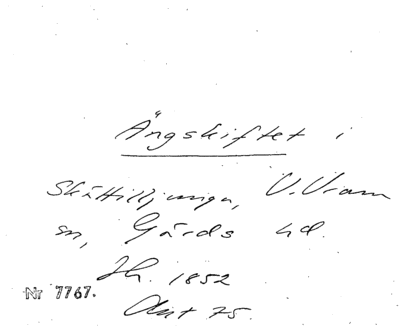 Ängskiftet i
Skättilljunga, V. Vram
sn, Gärds hd.
Jh. 1852
Akt 75.
Nr 7767.